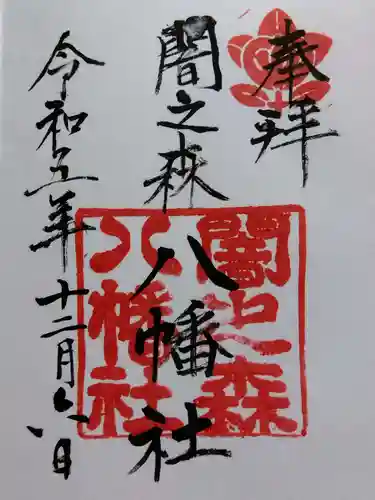 奉拝
闇之森
八幡社
闇之森
八幡社
令和五年十二月六日